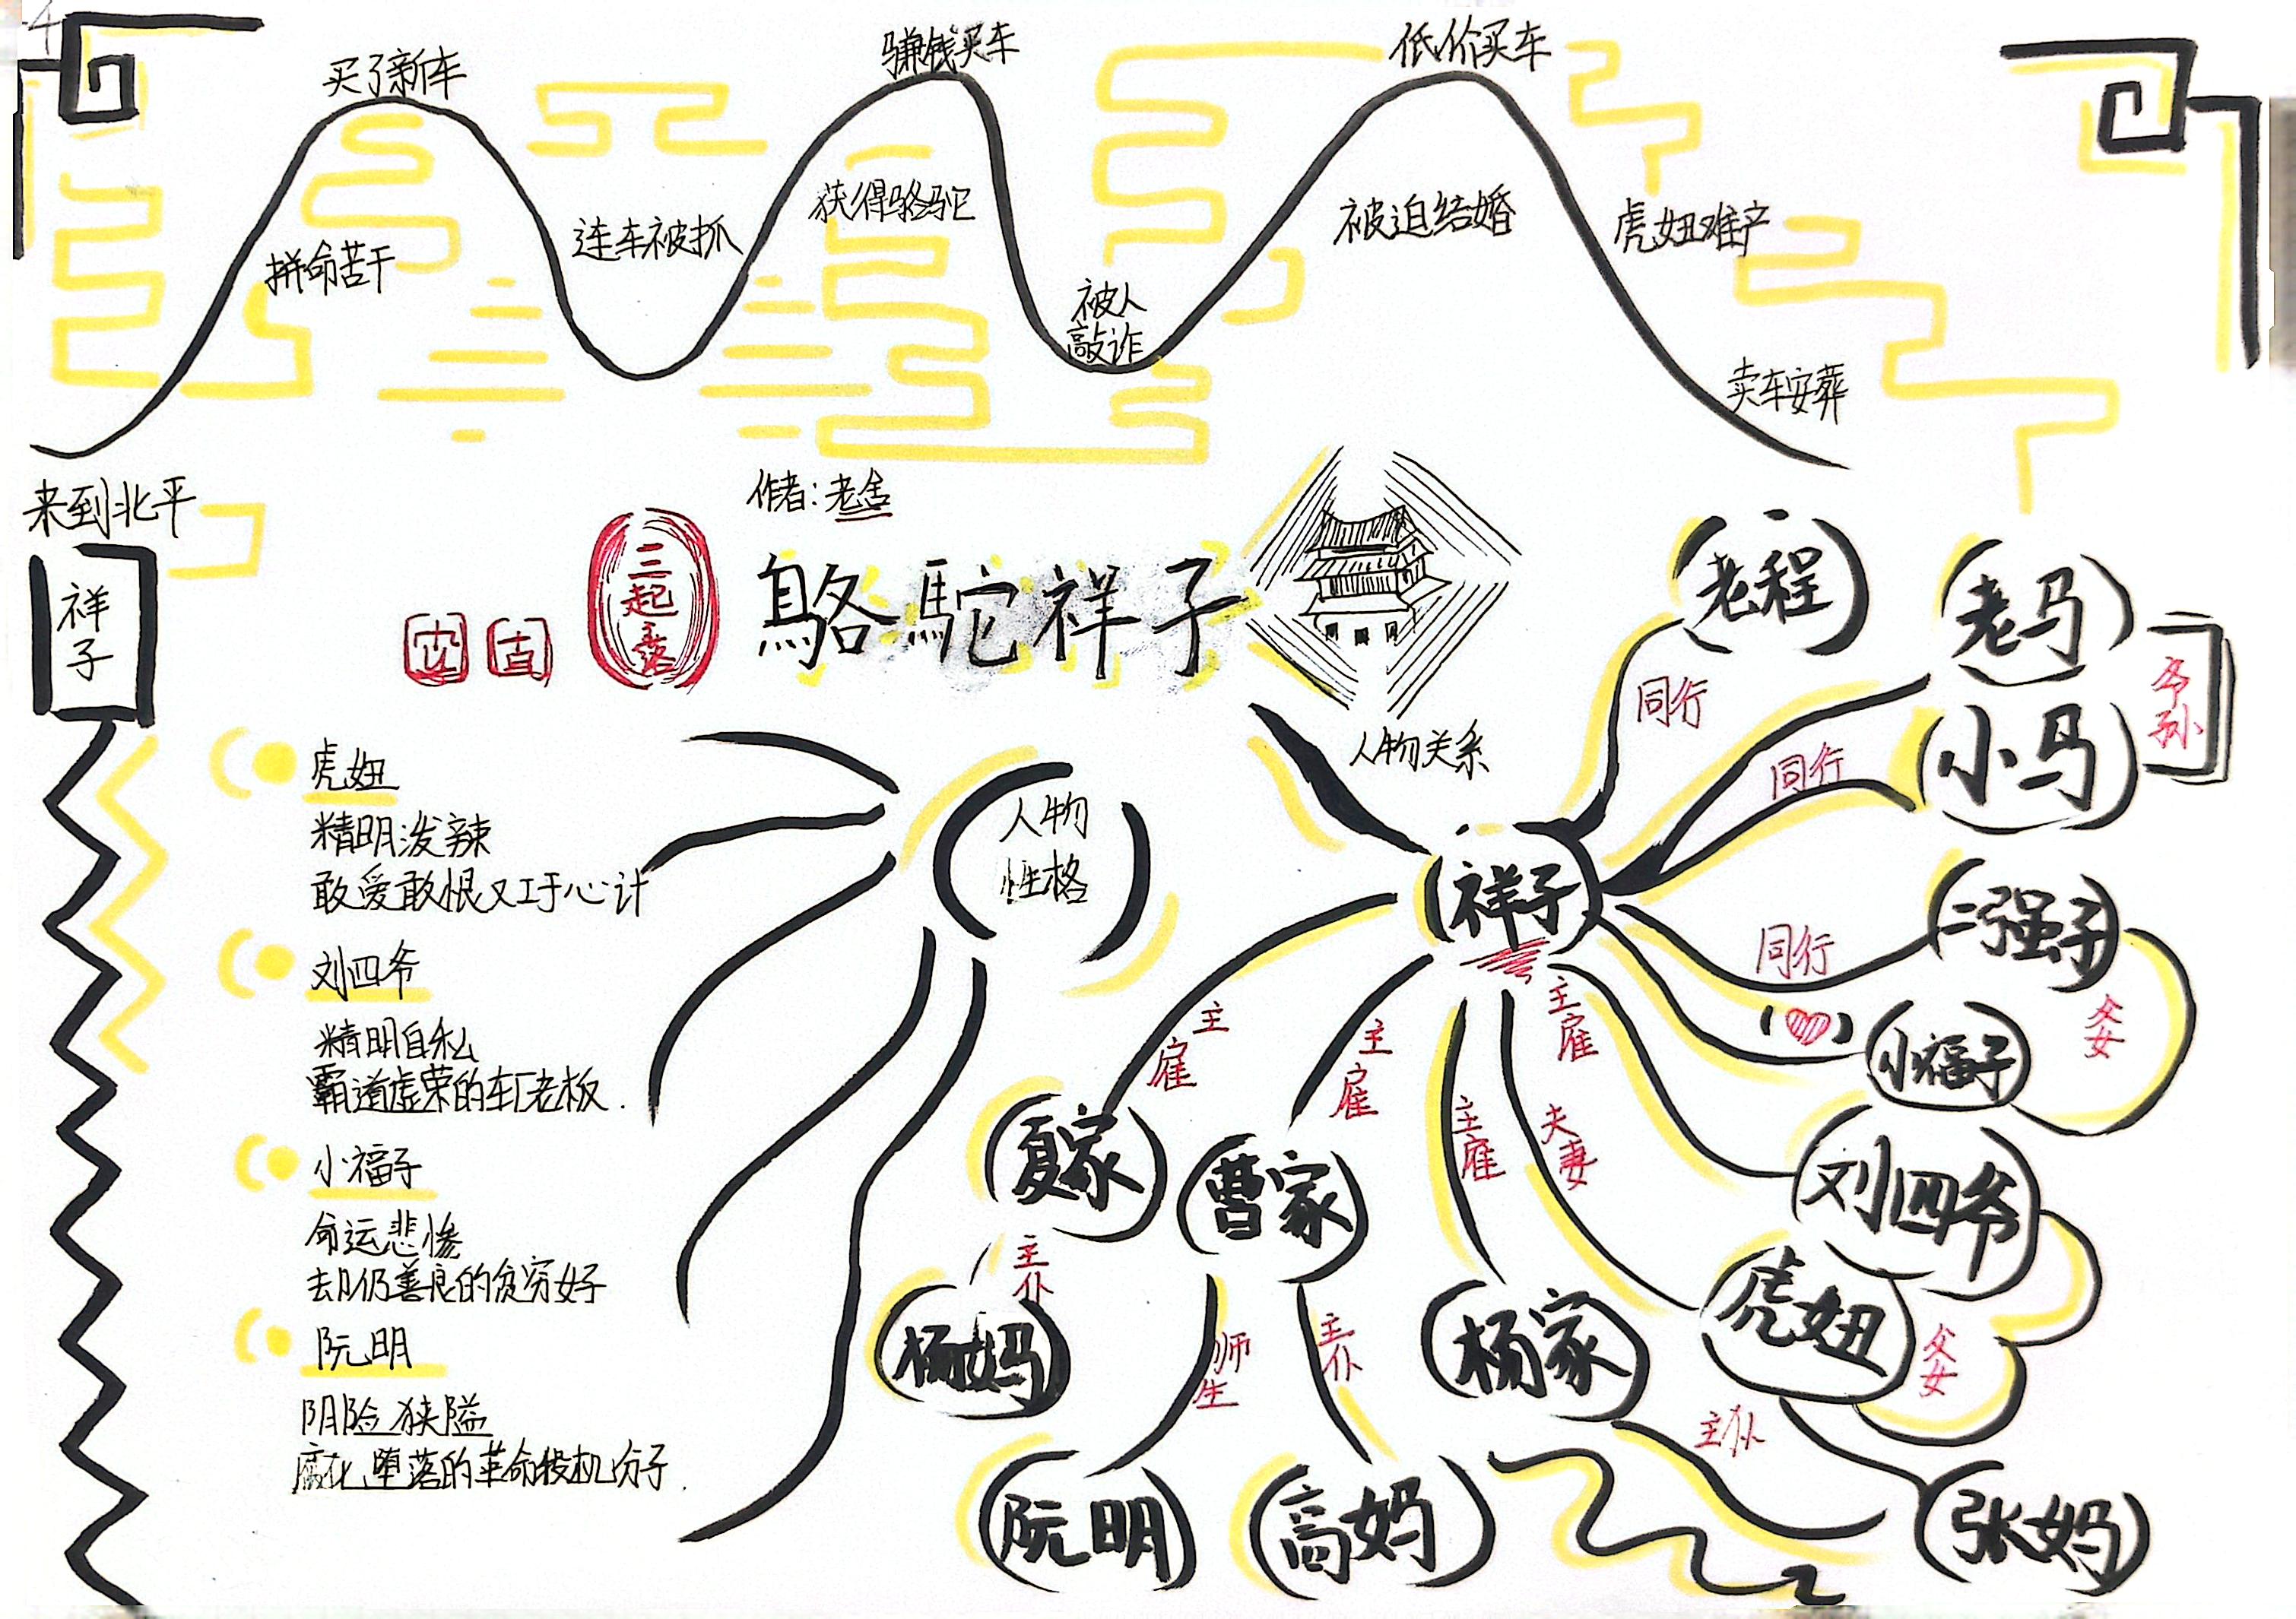 买了新车
赚钱买车
低价买车
拼命苦干
连车被抓
获得骆驼
被人
敲诈
被迫结婚
虎妞难产
卖车安葬
来到北平
祥
子
作者：老舍
三
起
三
落
駱駝祥子
人物关系
虎妞
精明泼辣
敢爱敢恨又工于心计
刘四爷
精明自私
霸道虚荣的车厂老板.
小福子
命运悲惨
却仍善良的贫穷女子
阮明
阴险狭隘
腐化堕落的革命投机分子.
人物
性格
祥子
老程
同行
老马
小马
同行
爷
孙
二强子
同行
小福子
父
女
刘四爷
主
雇
虎妞
夫
妻
父
女
张妈
主仆
杨家
主
雇
曹家
主
雇
夏家
主
雇
杨妈
主
仆
阮明
师
生
高妈
主
仆